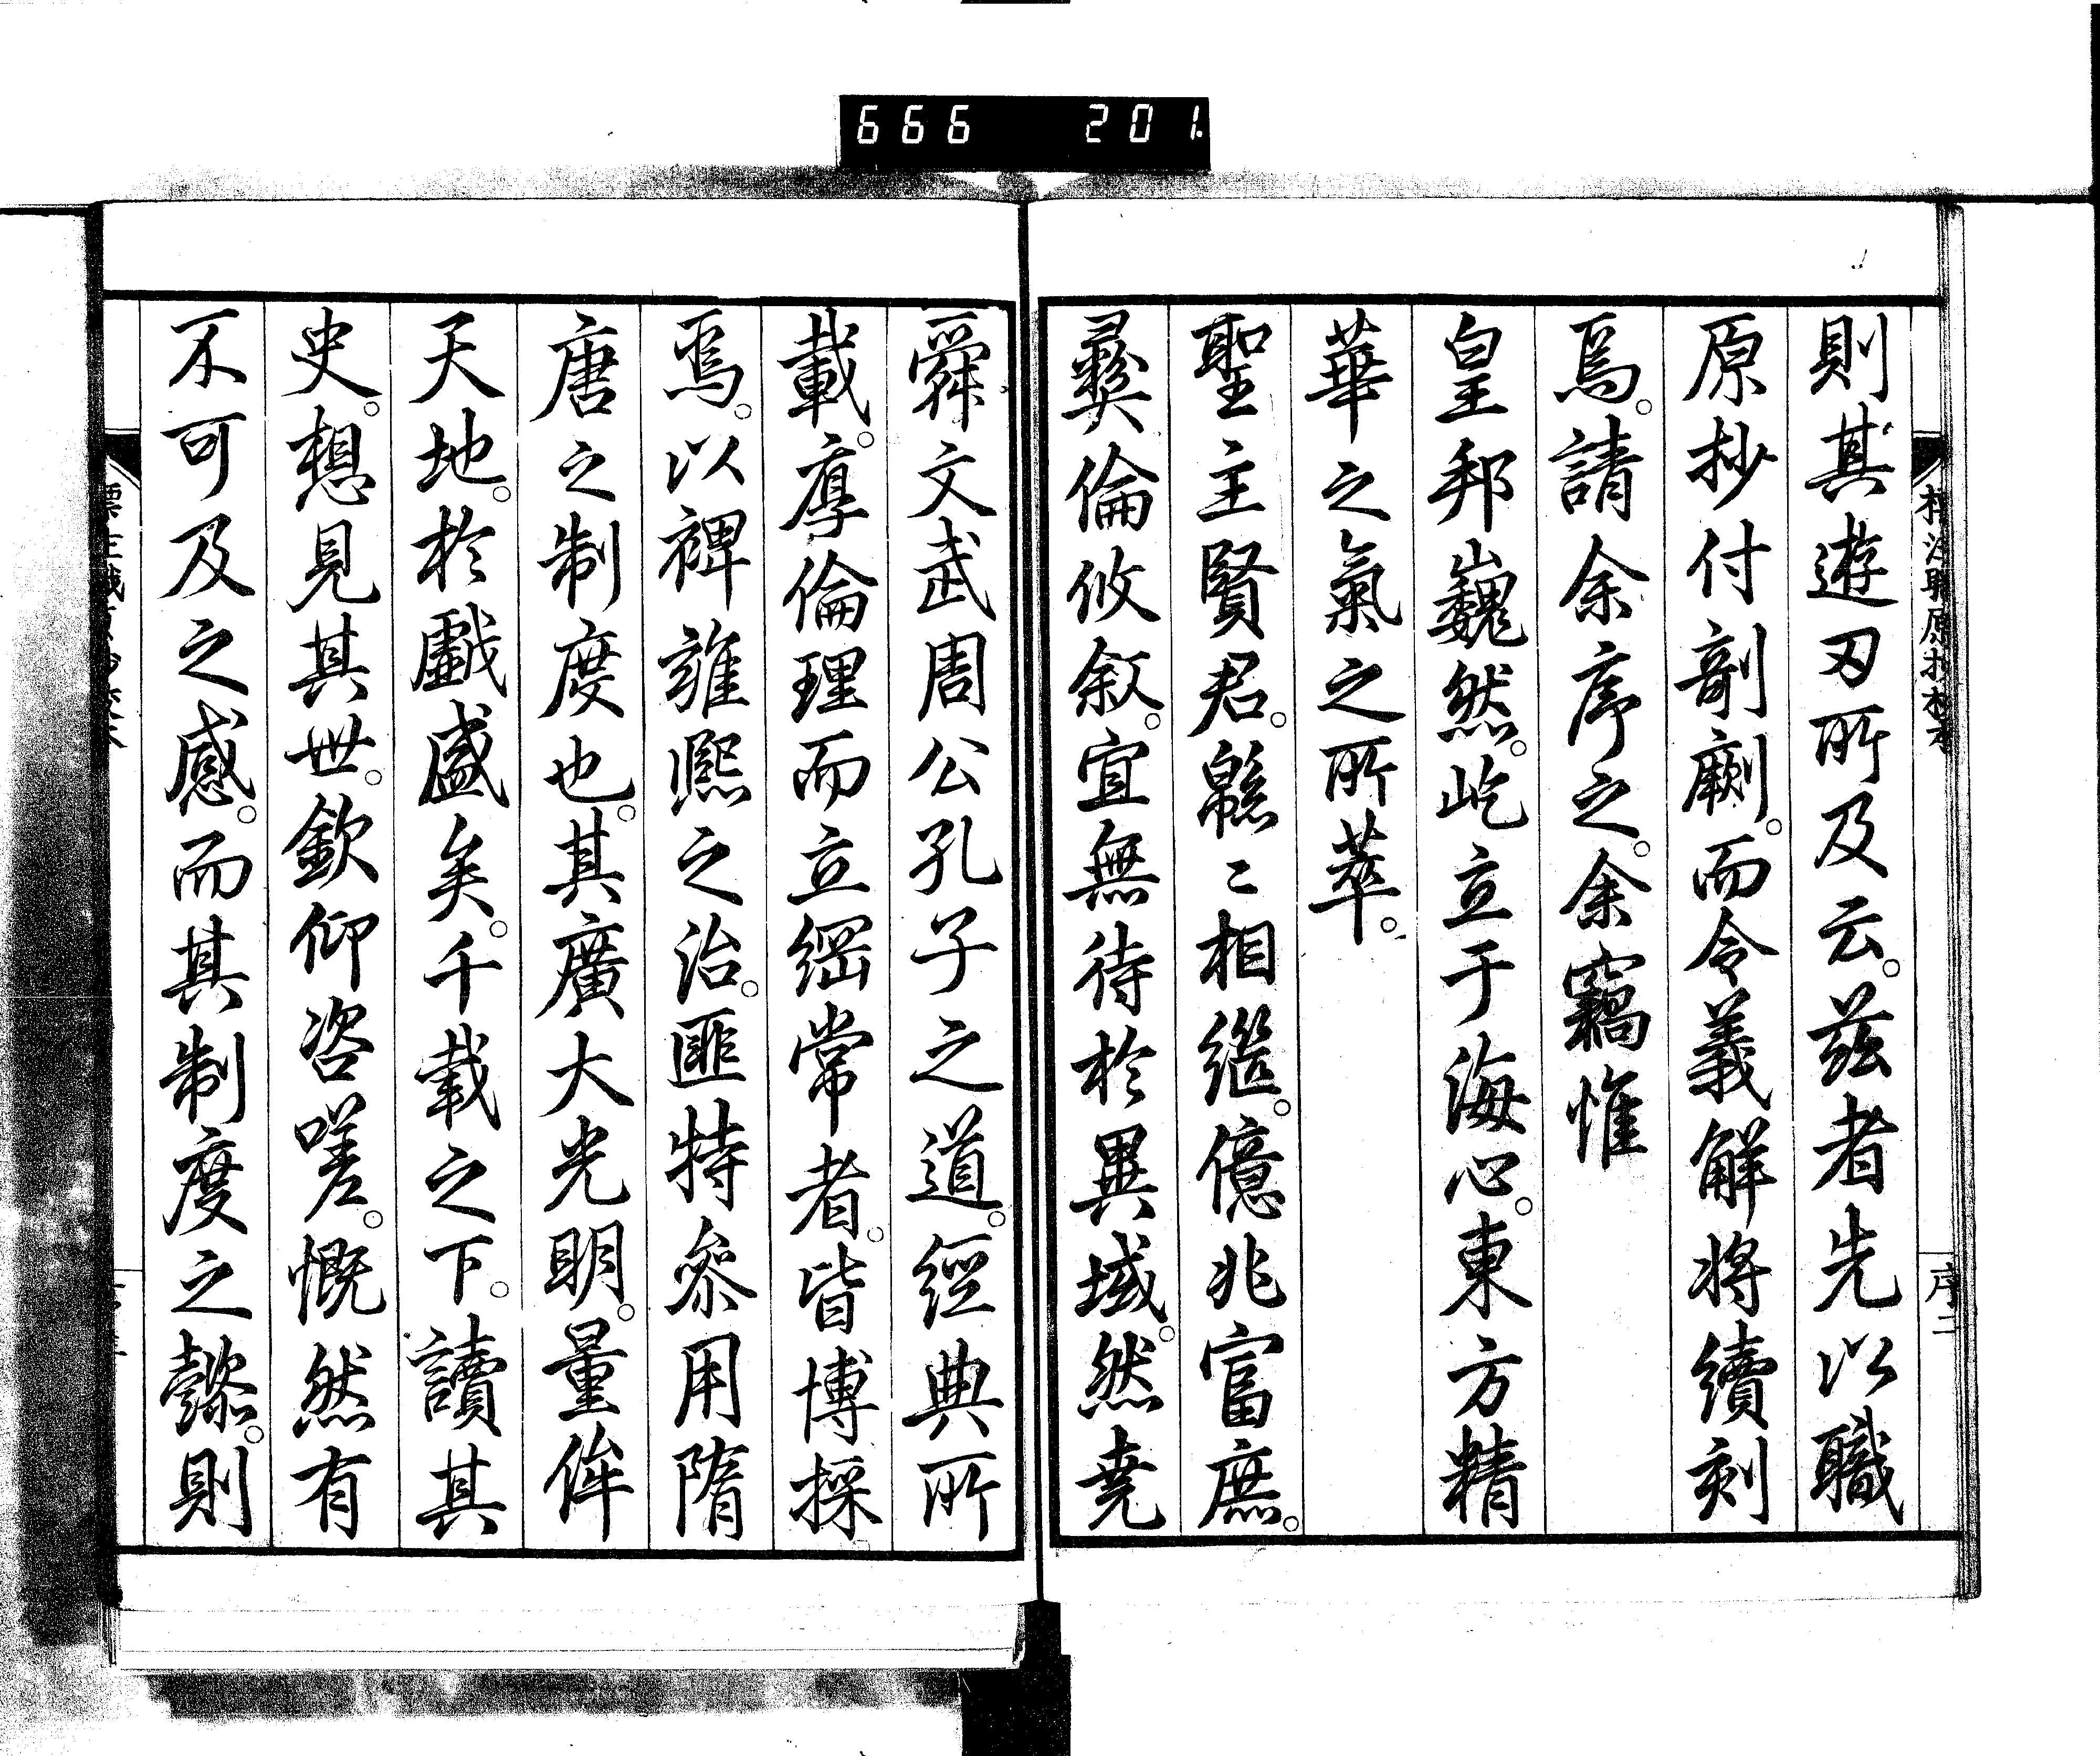 666 201.
標注職原抄校本
序二
則其遊刃所及云。茲者先以職
原抄付剞劂。而令義解將續刻
焉。請余序之。余竊惟
皇邦巍然。屹立于海心。東方精
華之氣之所萃。
聖主賢君。緜〻相繼。億兆富庶。
彝倫攸敘。宜無待於異域。然堯
舜文武周公孔子之道。經典所
載。厚倫理而立綱常者。皆博採
焉。以裨雍熙之治。匪特參用隋
唐之制度也。其廣大光明。量侔
天地。於戲盛矣。千載之下。讀其
史。想見其世。欽仰咨嗟。慨然有
不可及之感。而其制度之懿。則